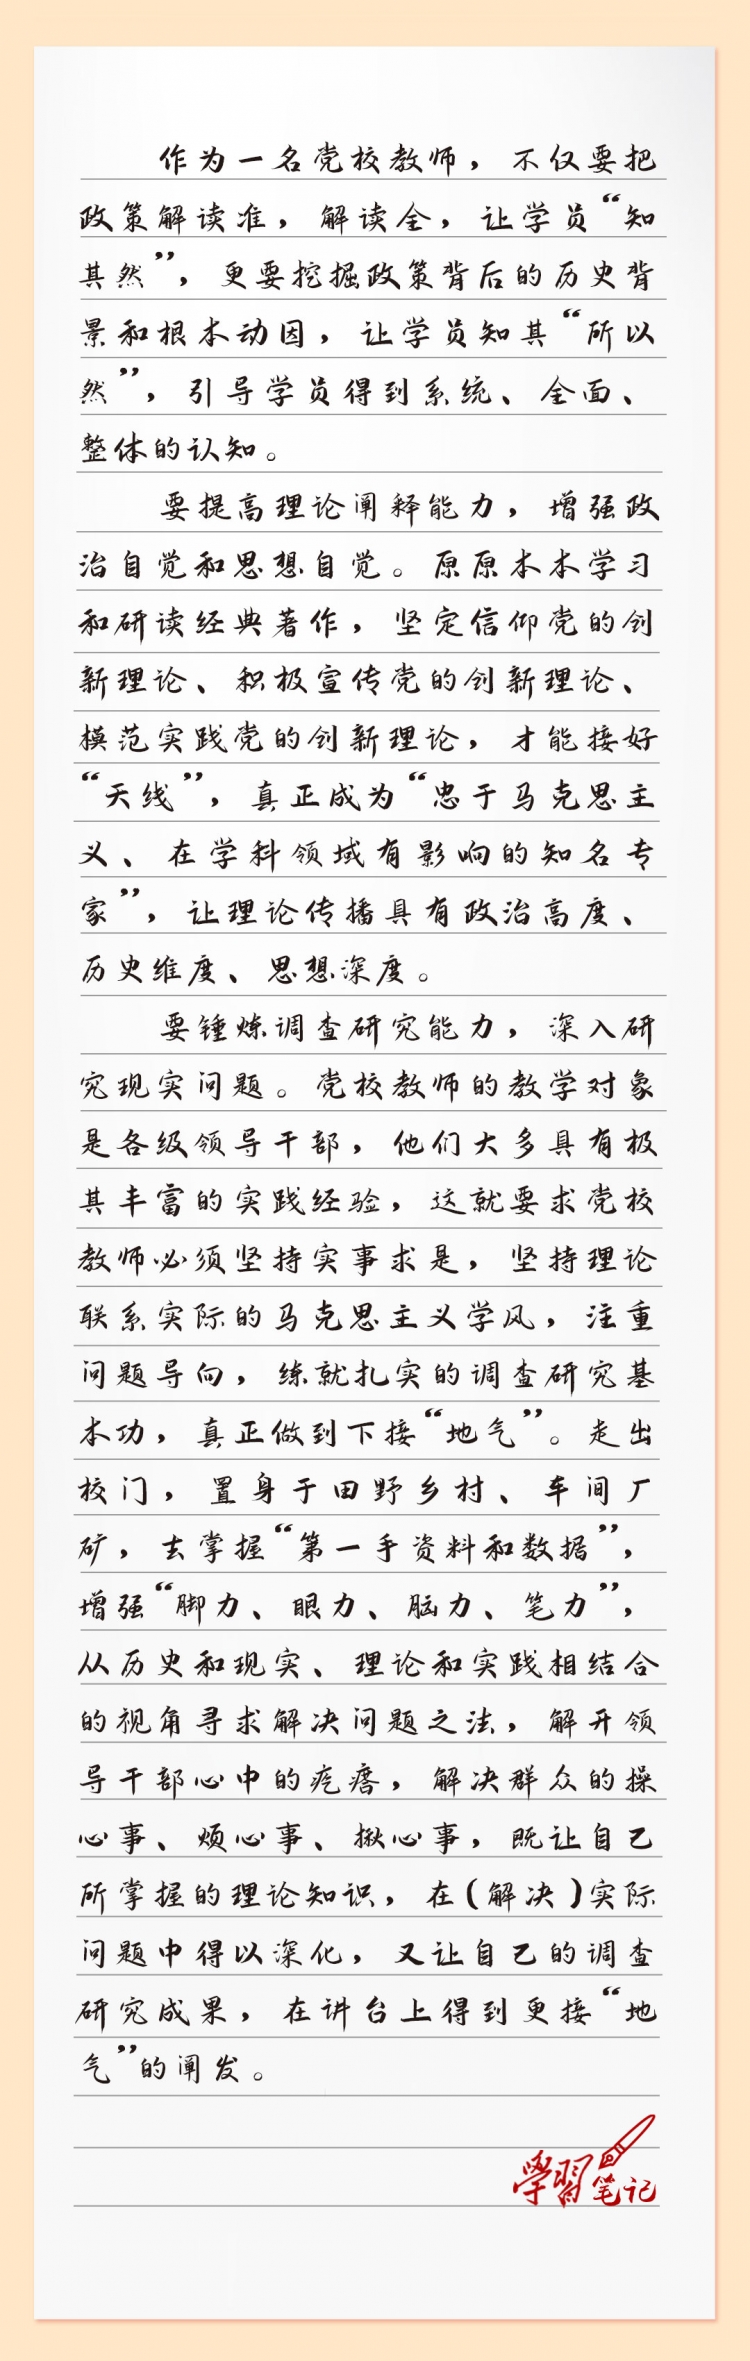 作为一名党校教师，不仅要把
政策解读准，解读全，让学员“知
其然”，更要挖掘政策背后的历史背
景和根本动因，让学员知其“所以
然”，引导学员得到系统、全面、
整体的认知。
要提高理论阐释能力，增强政
治自觉和思想自觉。原原本本学习
和研读经典著作，坚定信仰党的创
新理论、积极宣传党的创新理论、
模范实践党的创新理论，才能接好
“天线”，真正成为“忠于马克思主
义、在学科领域有影响的知名专
家”，让理论传播具有政治高度、
历史维度、思想深度。
要锤炼调查研究能力，深入研
究现实问题。党校教师的教学对象
是各级领导干部，他们大多具有极
其丰富的实践经验，这就要求党校
教师必须坚持实事求是，坚持理论
联系实际的马克思主义学风，注重
问题导向，练就扎实的调查研究基
本功，真正做到下接“地气”。走出
校门，置身于田野乡村、车间厂
矿，去掌握“第一手资料和数据”，
增强“脚力、眼力、脑力、笔力”，
从历史和现实、理论和实践相结合
的视角寻求解决问题之法，解开领
导干部心中的疙瘩，解决群众的操
心事、烦心事、揪心事，既让自己
所掌握的理论知识，在(解决)实际
问题中得以深化，又让自己的调查
研究成果，在讲台上得到更接“地
气”的阐发。
學習笔记